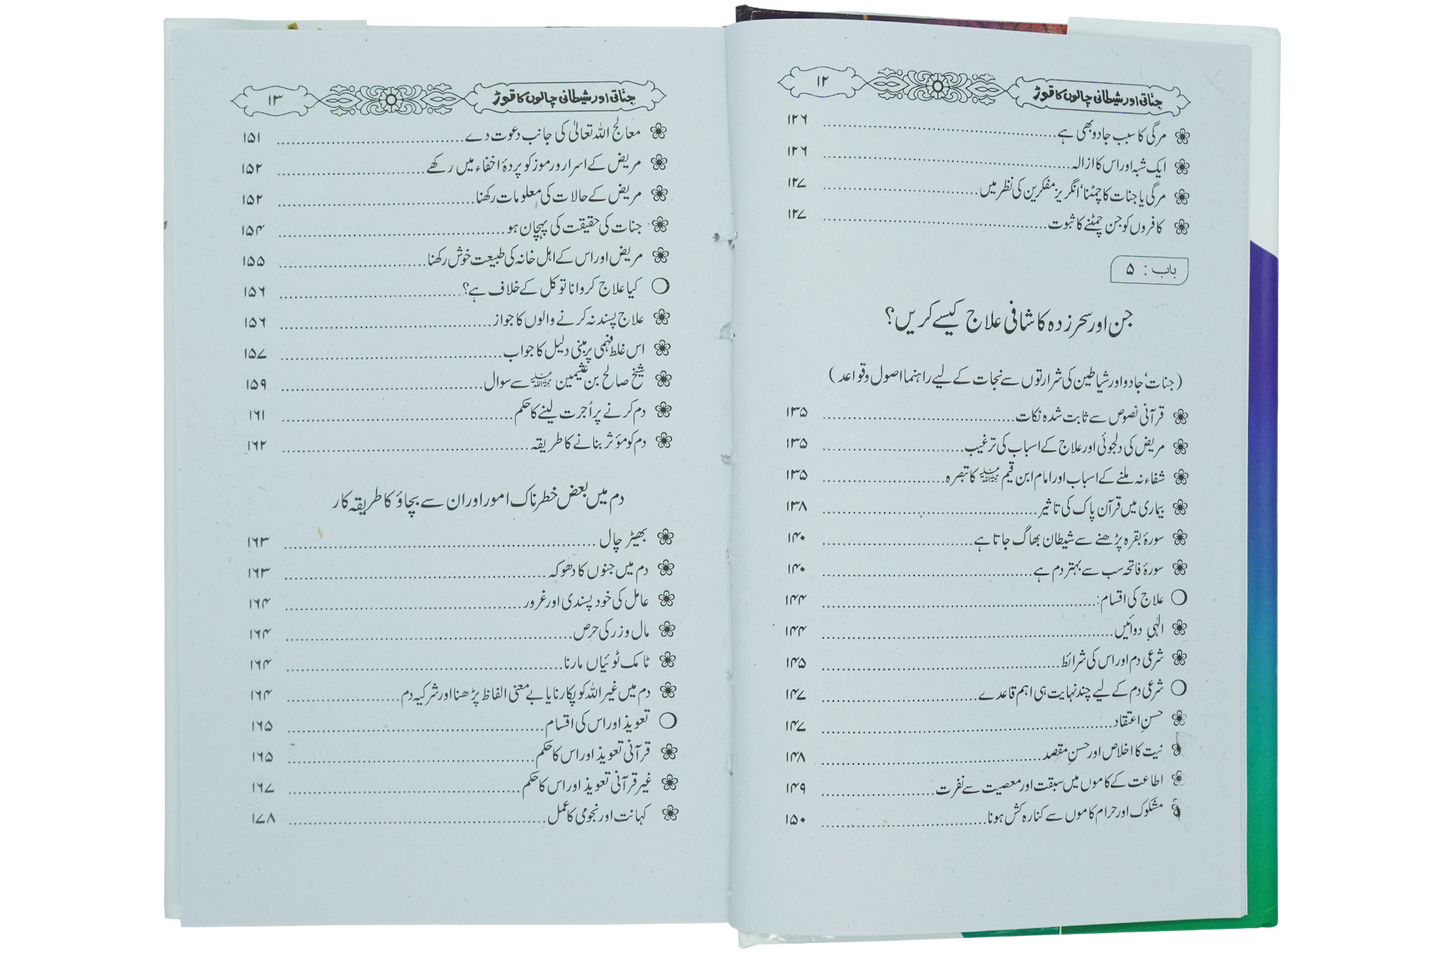 ۱۲
جناتی اور شیطانی چالوں کا توڑ
مرگی کا سبب جادو بھی ہے ۱۲۶
ایک شبہ اور اس کا ازالہ ۱۲۶
مرگی یا جنات کا چمٹنا‘ انگریز مفکرین کی نظر میں ۱۲۷
کافروں کو جن چمٹنے کا ثبوت ۱۲۷
باب : ۵
جن اور سحر زدہ کا شافی علاج کیسے کریں؟
(جنات‘ جادو اور شیاطین کی شرارتوں سے نجات کے لیے راہنما اصول و قواعد)
قرآنی نصوص سے ثابت شدہ نکات ۱۳۵
مریض کی دلجوئی اور علاج کے اسباب کی ترغیب ۱۳۵
شفاء نہ ملنے کے اسباب اور امام ابن قیم رحمہ اللہ کا تبصرہ ۱۳۵
بیماری میں قرآن پاک کی تاثیر ۱۳۸
سورۂ بقرہ پڑھنے سے شیطان بھاگ جاتا ہے ۱۴۰
سورۂ فاتحہ سب سے بہتر دم ہے ۱۴۰
علاج کی اقسام: ۱۴۴
الٰہی دوائیں ۱۴۴
شرعی دم اور اس کی شرائط ۱۴۵
شرعی دم کے لیے چند نہایت ہی اہم قاعدے ۱۴۷
حسنِ اعتقاد ۱۴۷
نیت کا اخلاص اور حسنِ مقصد ۱۴۸
اطاعت کے کاموں میں سبقت اور معصیت سے نفرت ۱۴۹
مشکوک اور حرام کاموں سے کنارہ کش ہونا ۱۵۰
۱۳
جناتی اور شیطانی چالوں کا توڑ
معالج اللہ تعالیٰ کی جانب دعوت دے ۱۵۱
مریض کے اسرار و رموز کو پردۂ اخفاء میں رکھے ۱۵۲
مریض کے حالات کی معلومات رکھنا ۱۵۲
جنات کی حقیقت کی پہچان ہو ۱۵۴
مریض اور اس کے اہل خانہ کی طبیعت خوش رکھنا ۱۵۵
کیا علاج کروانا توکل کے خلاف ہے؟ ۱۵۶
علاج پسند نہ کرنے والوں کا جواز ۱۵۶
اس غلط فہمی پر مبنی دلیل کا جواب ۱۵۷
شیخ صالح بن عثیمین رحمہ اللہ سے سوال ۱۵۹
دم کرنے پر اُجرت لینے کا حکم ۱۶۱
دم کو مؤثر بنانے کا طریقہ ۱۶۲
دم میں بعض خطرناک امور اور ان سے بچاؤ کا طریقہ کار
بھیڑ چال ۱۶۳
دم میں جنوں کا دھوکہ ۱۶۳
عامل کی خود پسندی اور غرور ۱۶۴
مال و زر کی حرص ۱۶۴
ٹامک ٹوئیاں مارنا ۱۶۴
دم میں غیر اللہ کو پکارنا یا بے معنی الفاظ پڑھنا اور شرکیہ دم ۱۶۴
تعویذ اور اس کی اقسام ۱۶۵
قرآنی تعویذ اور اس کا حکم ۱۶۵
غیر قرآنی تعویذ اور اس کا حکم ۱۶۷
کہانت اور نجومی کا عمل ۱۷۸